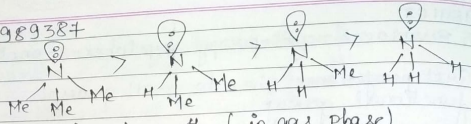 989387
N > N > N > N
Me Me Me H Me Me H H Me H H H
(in gas phase)